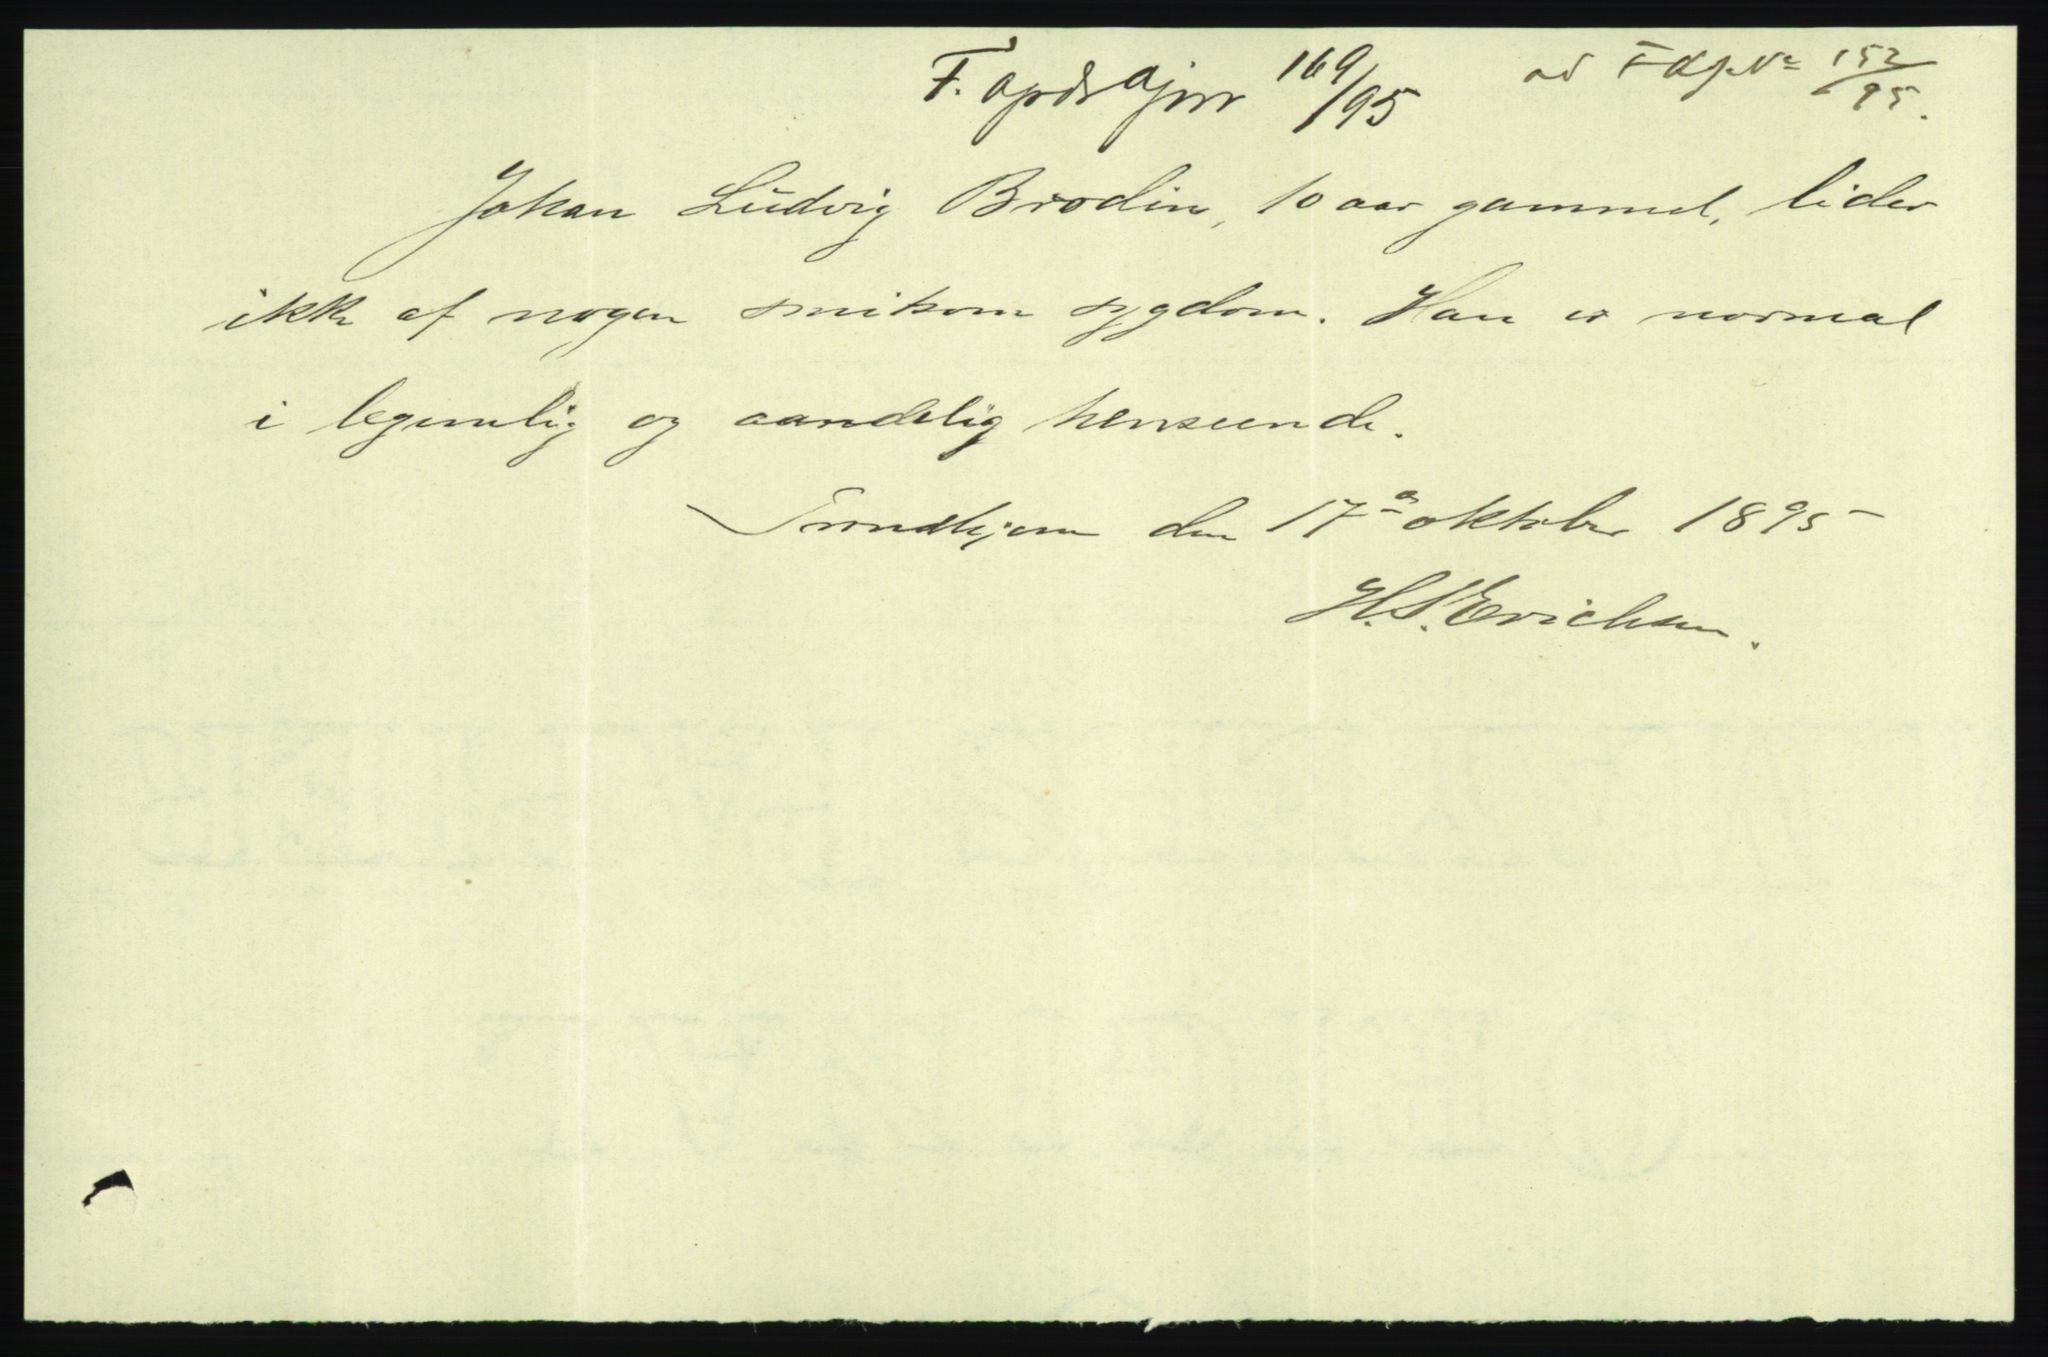 F. opdr ajnr 169/95 ad F djr No 152/95.
Johan Ludvig Brodin, 10 aar gammel, lider
ikke af nogen smitsom sygdom. Han er normal
i legemlig og aandelig henseende.
Trondhjem den 17de oktober 1895
H.S. Erichsen.